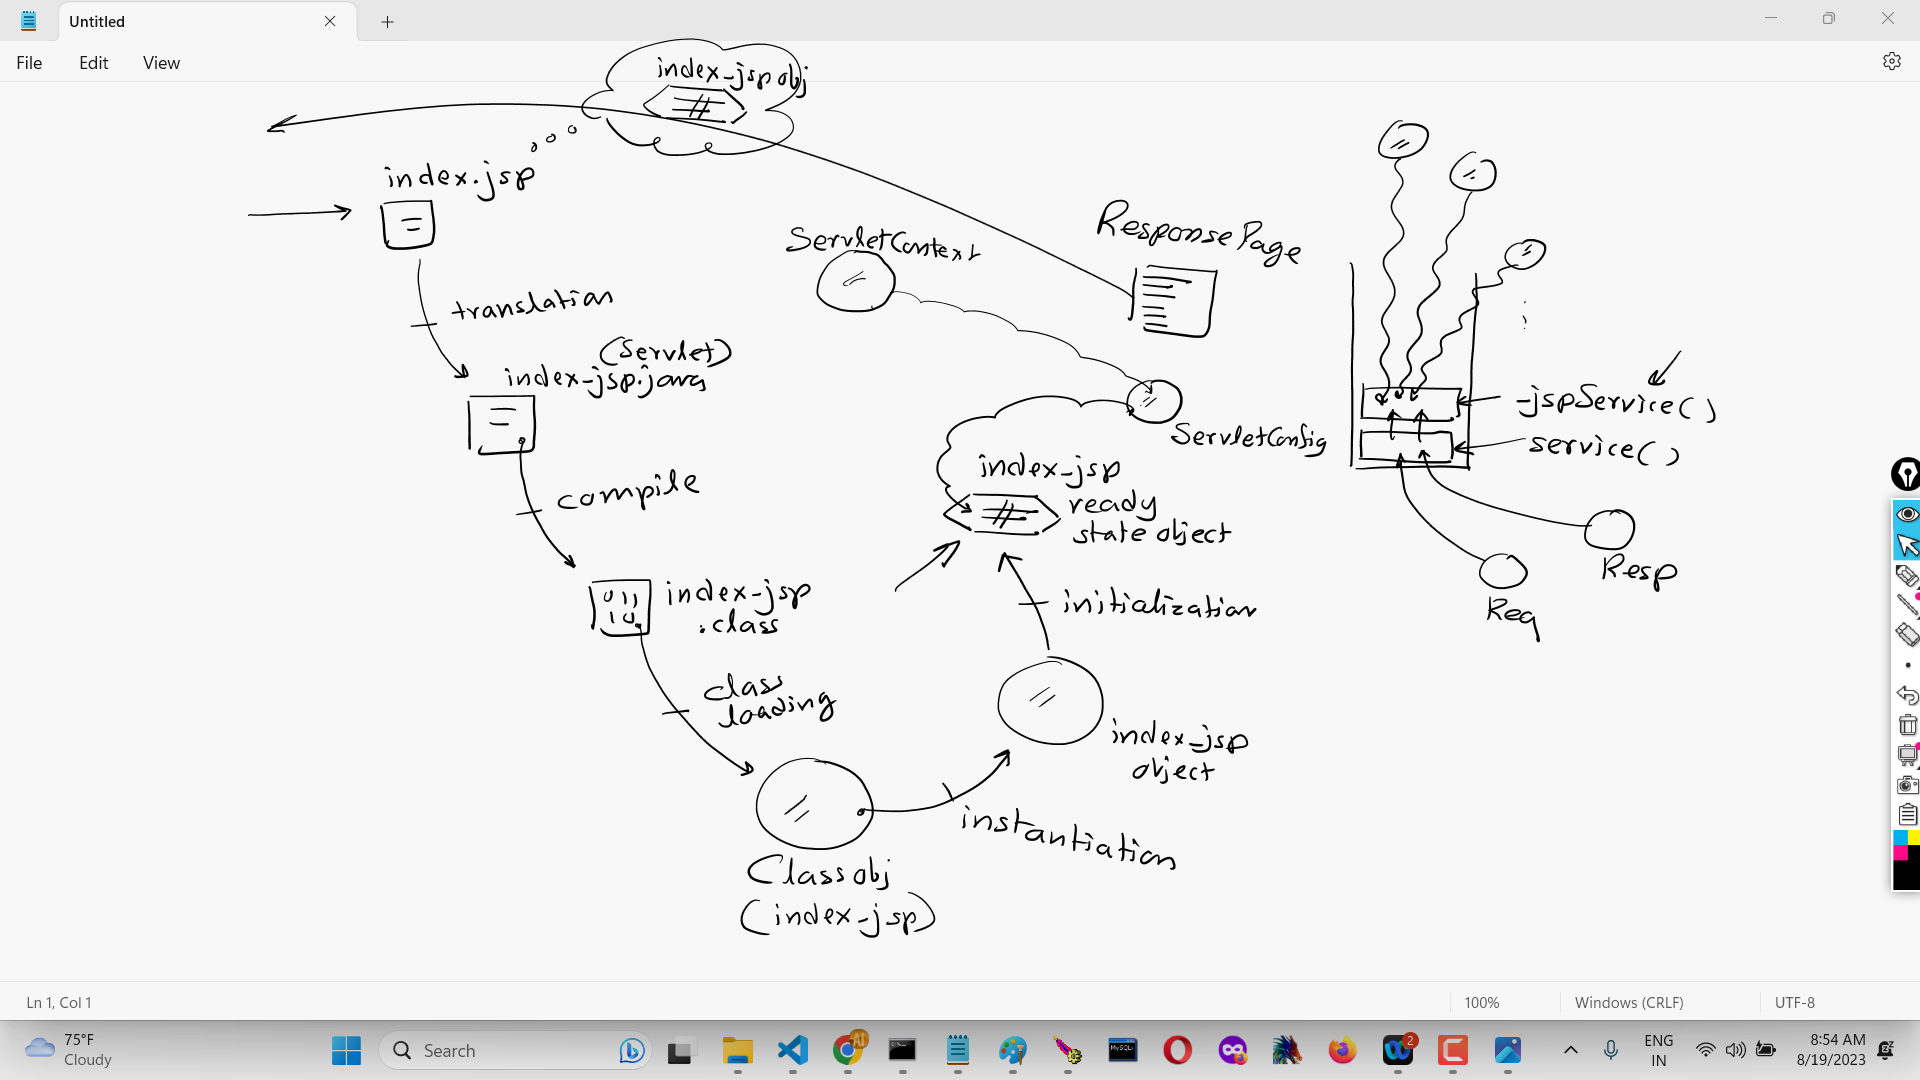 Untitled
File Edit View
index_jsp obj
index.jsp
translation
(Servlet)
index_jsp.java
compile
index_jsp
.class
class
loading
Class obj
(index_jsp)
instantiation
index_jsp
object
initialization
index_jsp
ready
state object
ServletContext
ServletConfig
Response Page
_jspService()
service()
Req
Resp
Ln 1, Col 1
100%
Windows (CRLF)
UTF-8
75°F
Cloudy
Search
AI
MySQL
2
ENG
IN
8:54 AM
8/19/2023